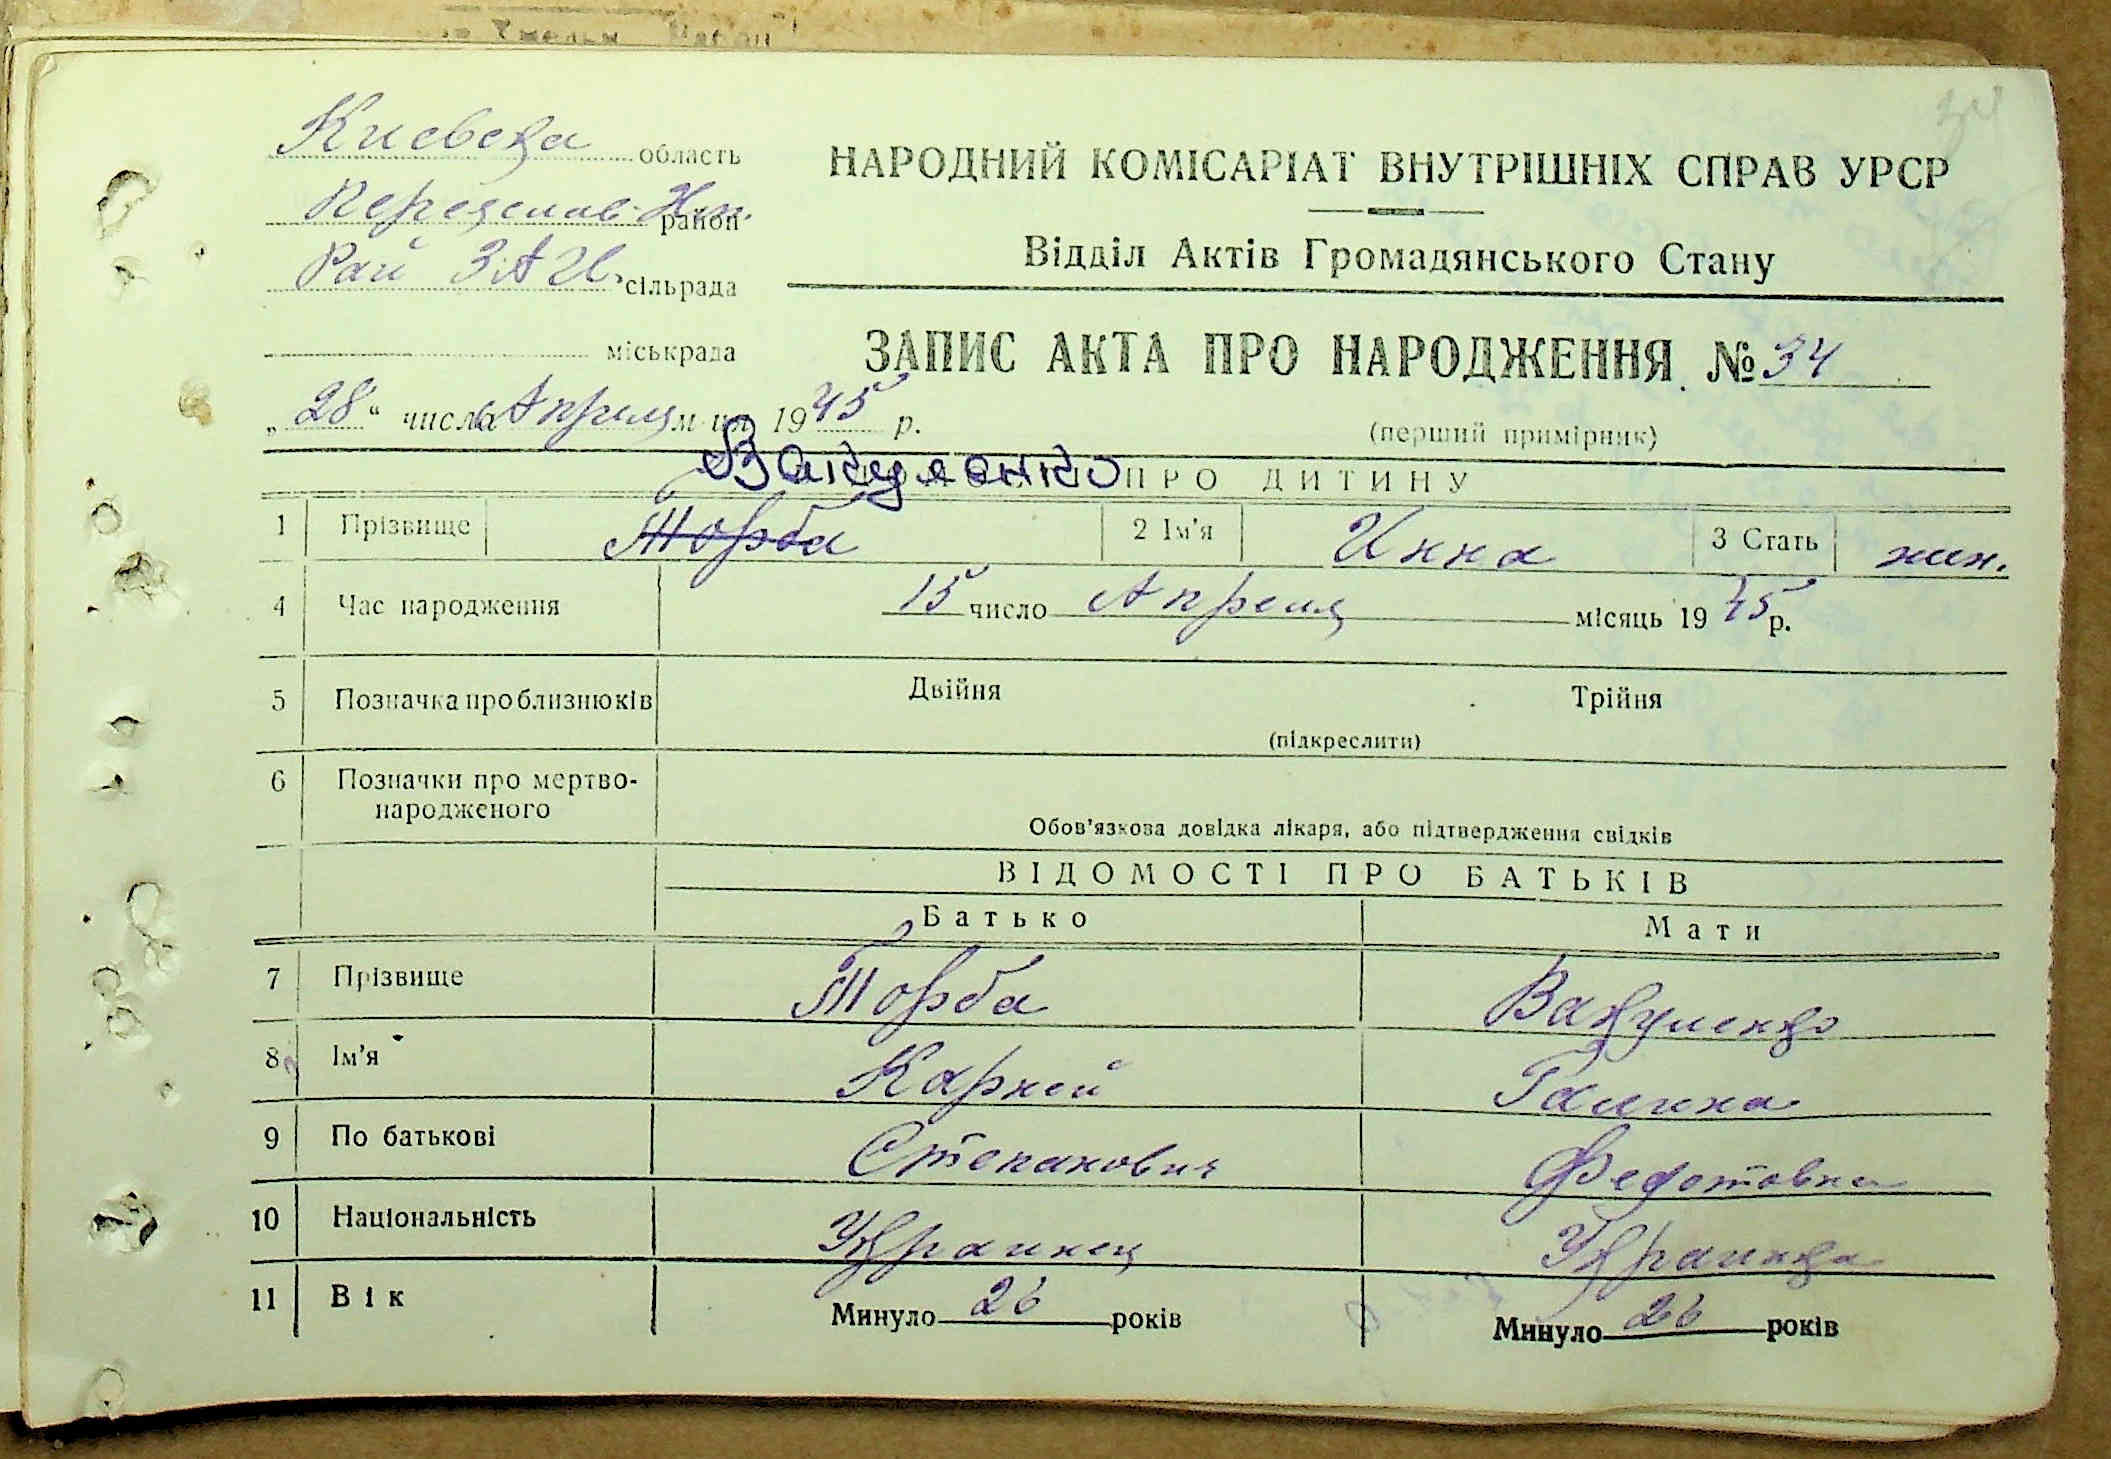 34
Киевска область
Переяслав-Хм. район
Рай ЗАГС сільрада
міськрада
НАРОДНИЙ КОМІСАРІАТ ВНУТРІШНІХ СПРАВ УРСР
Відділ Актів Громадянського Стану
ЗАПИС АКТА ПРО НАРОДЖЕННЯ №34
„28“ числа Апреля м-ця 1945 р.
(перший примірник)
Вакуленко ПРО ДИТИНУ
1 Прізвище Торба 2 Ім'я Инна 3 Стать жин.
4 Час народження 15 число Апреля місяць 1945 р.
5 Позначка про близнюків Двійня Трійня
(підкреслити)
6 Позначки про мертво-
народженого
Обов'язкова довідка лікаря, або підтвердження свідків
ВІДОМОСТІ ПРО БАТЬКІВ
Батько Мати
7 Прізвище Торба Вакуленко
8 Ім'я Карней Галина
9 По батькові Степанович Федотовна
10 Національність Украинец Украинка
11 Вік Минуло 26 років Минуло 26 років